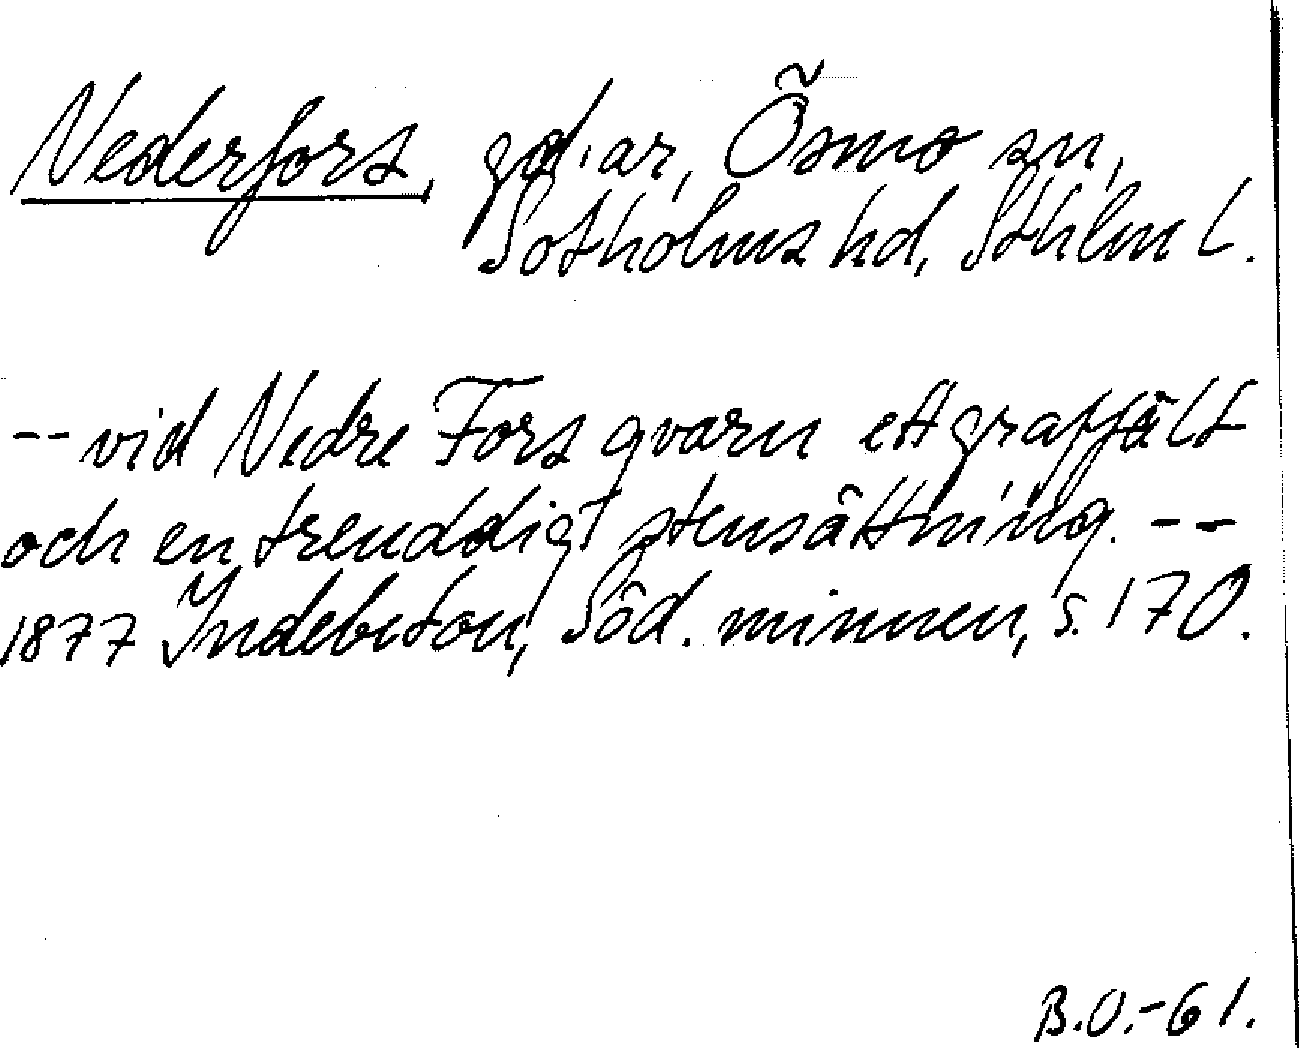 Nederfors, gd. ar, Ösmo sn,
Sotholms hd, Sthlm L.
-- vid Nedre Fors qvarn ett graffält
och en treuddig stensättning. --
1877 Indebetou, Söd. minnen, s. 170.
B.O.-61.